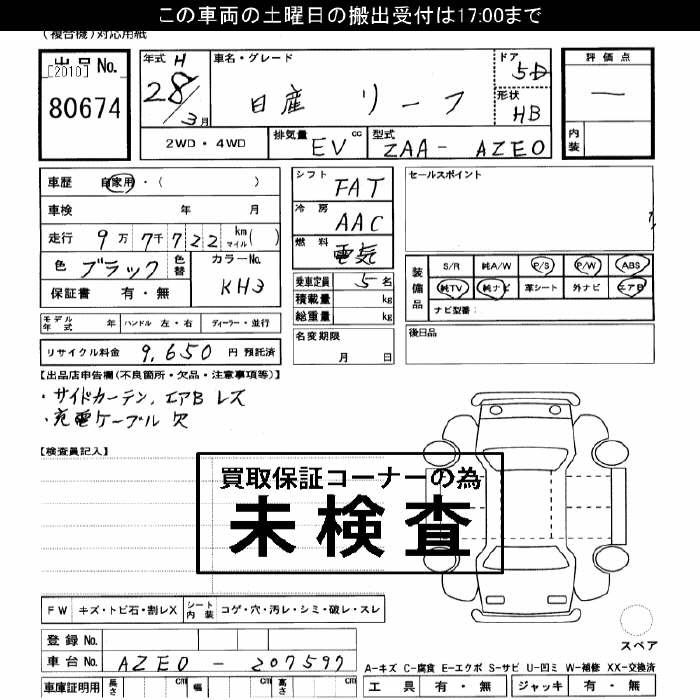 この車両の土曜日の搬出受付は17:00まで
(複合機)対応用紙
出品No.
[2010]
80674
年式 H 28/3月
車名・グレード
日産 リーフ
ドア 5D
形状 HB
評価点
—
内装
2WD・4WD
排気量 EV cc
型式 ZAA- AZE0
車歴 自家用・( )
車検 年 月
走行 9万 7千 7 2 2 km マイル( )
色 ブラック 色替
カラーNo. KH3
保証書 有・無
シフト FAT
冷房 AAC
燃料 電気
乗車定員 5 名
積載量 kg
総重量 kg
名変期限 月 日
セールスポイント
装備品 S/R 純A/W P/S P/W ABS
純TV 純ナビ 革シート 外ナビ エアB
ナビ型番:
後日品
モデル年式 年 ハンドル 左・右 ディーラー・並行
リサイクル料金 9,650 円 預託済
【出品店申告欄(不良箇所・欠品・注意事項等)】
・サイドカーテン,エアB レス
・充電ケーブル 欠
【検査員記入】
買取保証コーナーの為
未検査
FW キズ・トビ石・割レX シート内装 コゲ・穴・汚レ・シミ・破レ・スレ
登録No.
車台No. AZE0 - 207597
車庫証明用 長さ cm 幅 cm 高さ cm
スペア
A-キズ C-腐食 E-エクボ S-サビ U-凹ミ W-補修 XX-交換済
工具 有・無 ジャッキ 有・無